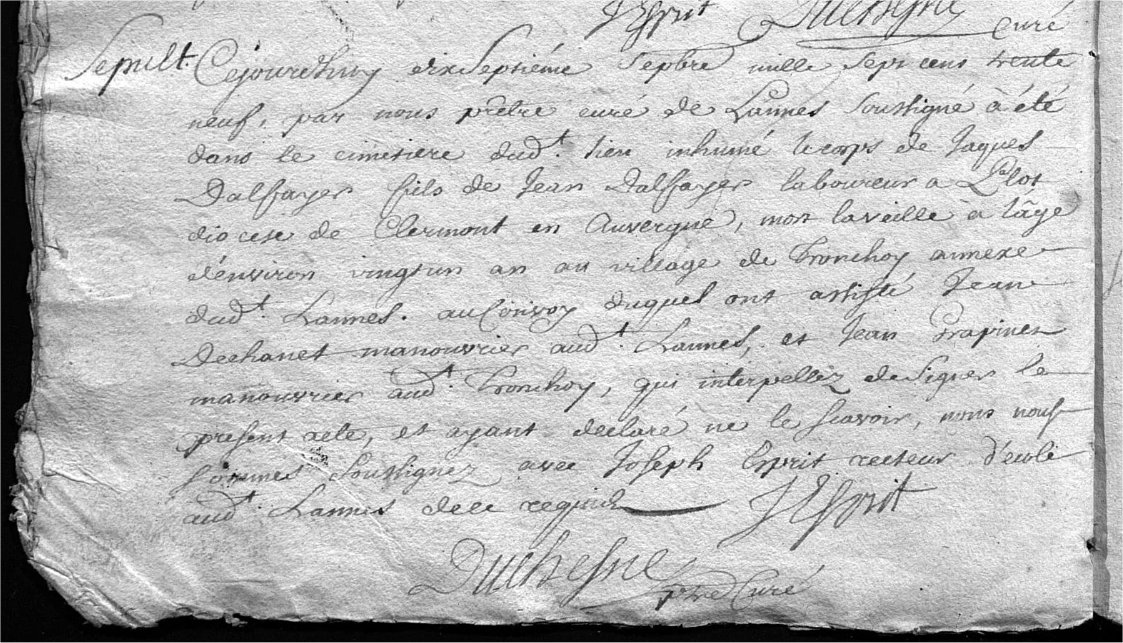 JEsprit Duchesne
curé
Sepult. Cejourdhuy dixseptiéme Sepbre mille sept cens trente
neuf, par nous prêtre curé de Lannes soussigné à été
dans le cimetiere dud.t lieu inhumé le corps de Jaques
Dalfayer fils de Jean Dalfayer laboureur a
diocese de Clermont en Auvergne, mort la veille a l'âge
d'environ vingt un an au village de Tronchoy annexe
dud.t Lannes. au Convoy duquel ont assisté Jean
Dechanet manouvrier aud.t Lannes, et Jean Prapinet
manouvrier aud.t Tronchoy, qui interpellez de signer le
present acte, et ayant declaré ne le scavoir, nous nous
sommes soussignez avec Joseph Esprit recteur d'écolé
aud.t Lannes de ce requis
JEsprit
Duchesne
ptre Curé